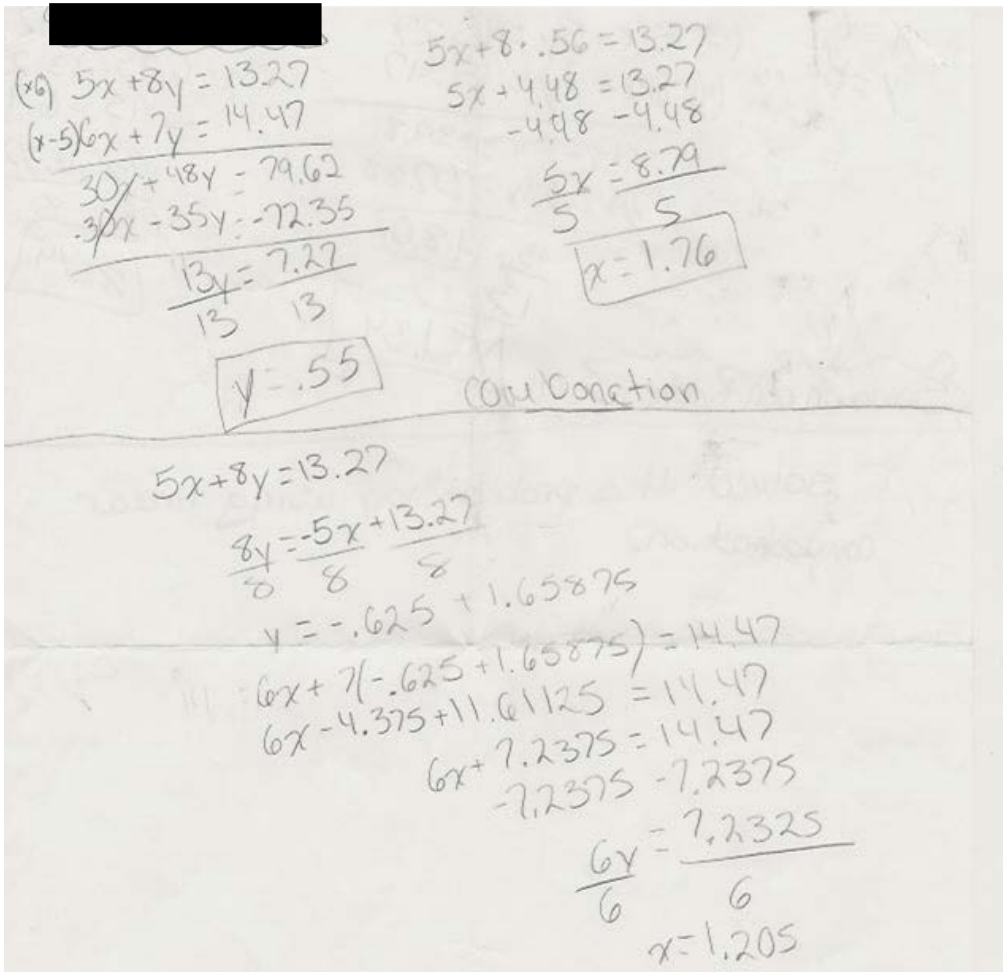 (x6) 5x + 8y = 13.27
(x-5) 6x + 7y = 14.47
30x + 48y = 79.62
-30x - 35y = -72.35
13y = 7.27
13 13
y = .55
5x + 8 · .56 = 13.27
5x + 4.48 = 13.27
-4.48 -4.48
5x = 8.79
5 5
x = 1.76
5x + 8y = 13.27
8y = -5x + 13.27
8 8 8
y = -.625 + 1.65875
6x + 7(-.625 + 1.65875) = 14.47
6x - 4.375 + 11.61125 = 14.47
6x + 7.2375 = 14.47
-7.2375 -7.2375
6x = 7.2325
6 6
x = 1.205